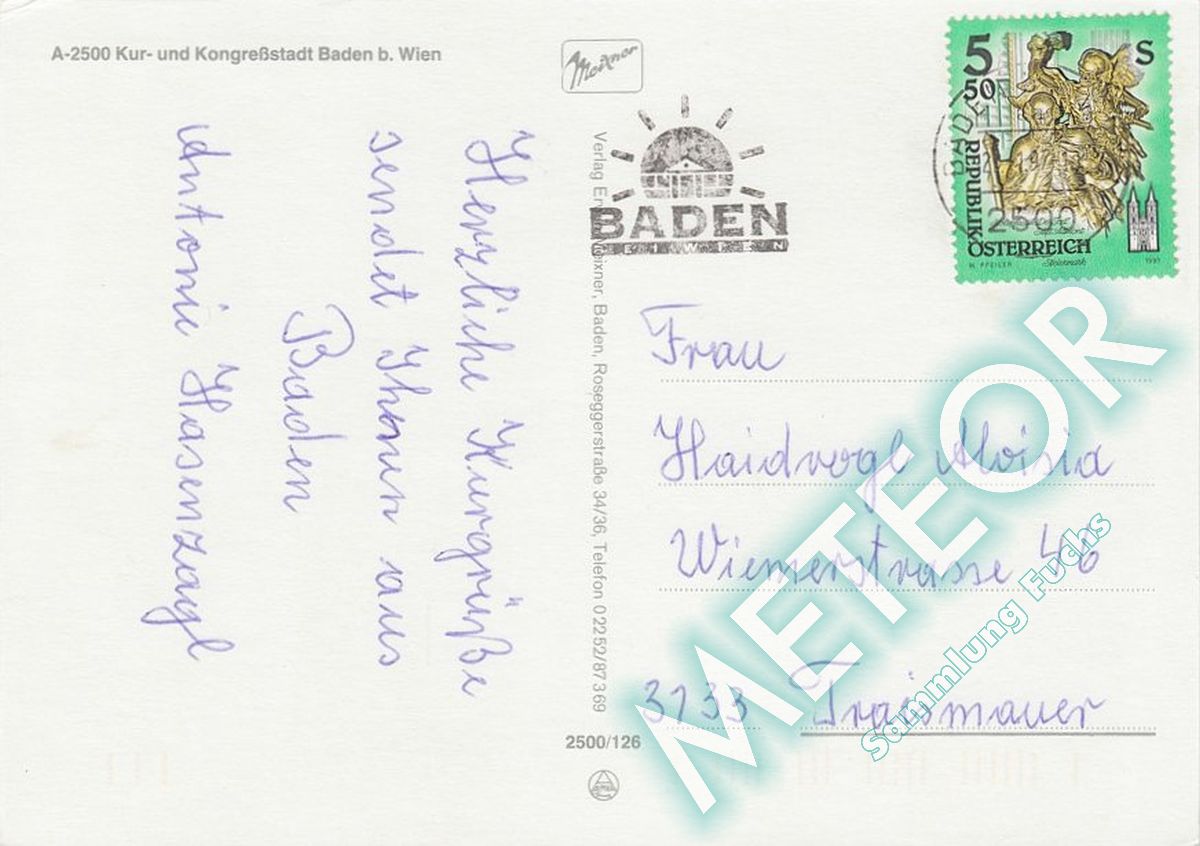 A-2500 Kur- und Kongreßstadt Baden b. Wien
Meixner
Herzliche Kurgrüße
sendet Ihnen aus
Baden
Antonie Hasenzagl
Verlag Meixner, Baden, Roseggerstraße 34/36, Telefon 0 22 52/87 3 69
2500/126
BADEN
BEI WIEN
5 S
50
REPUBLIK
ÖSTERREICH
H. PFEILER Steiermark 1993
BADEN
2500
Frau
Haidvogl Aloisia
Wienerstrasse 46
3133 Traismauer
METEOR
Sammlung Fuchs